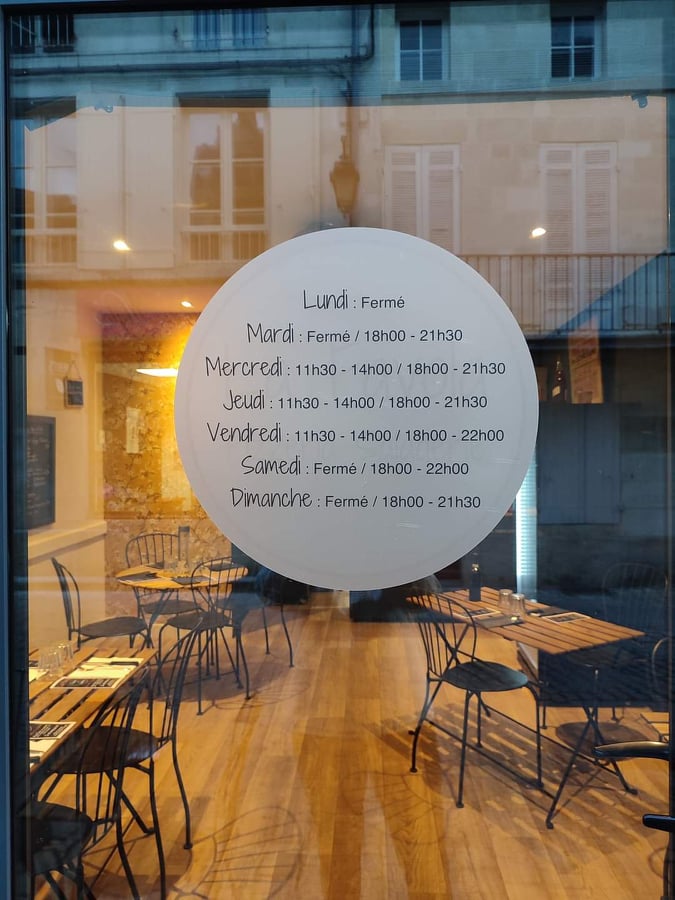 Lundi : Fermé
Mardi : Fermé / 18h00 - 21h30
Mercredi : 11h30 - 14h00 / 18h00 - 21h30
Jeudi : 11h30 - 14h00 / 18h00 - 21h30
Vendredi : 11h30 - 14h00 / 18h00 - 22h00
Samedi : Fermé / 18h00 - 22h00
Dimanche : Fermé / 18h00 - 21h30